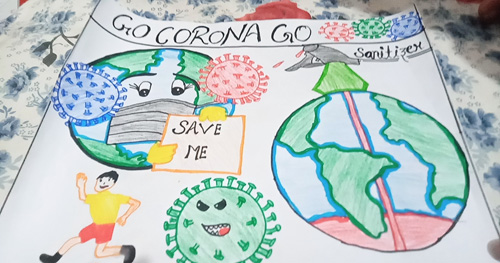 GO CORONA GO
Sanitizer
SAVE
ME